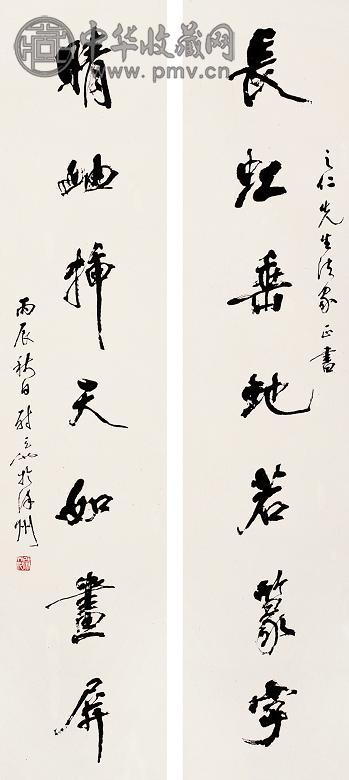 中华收藏网
www.pmv.cn
之仁先生法家正書
長虹垂地若篆字
晴岫插天如畫屏
丙辰秋日尉天池於徐州